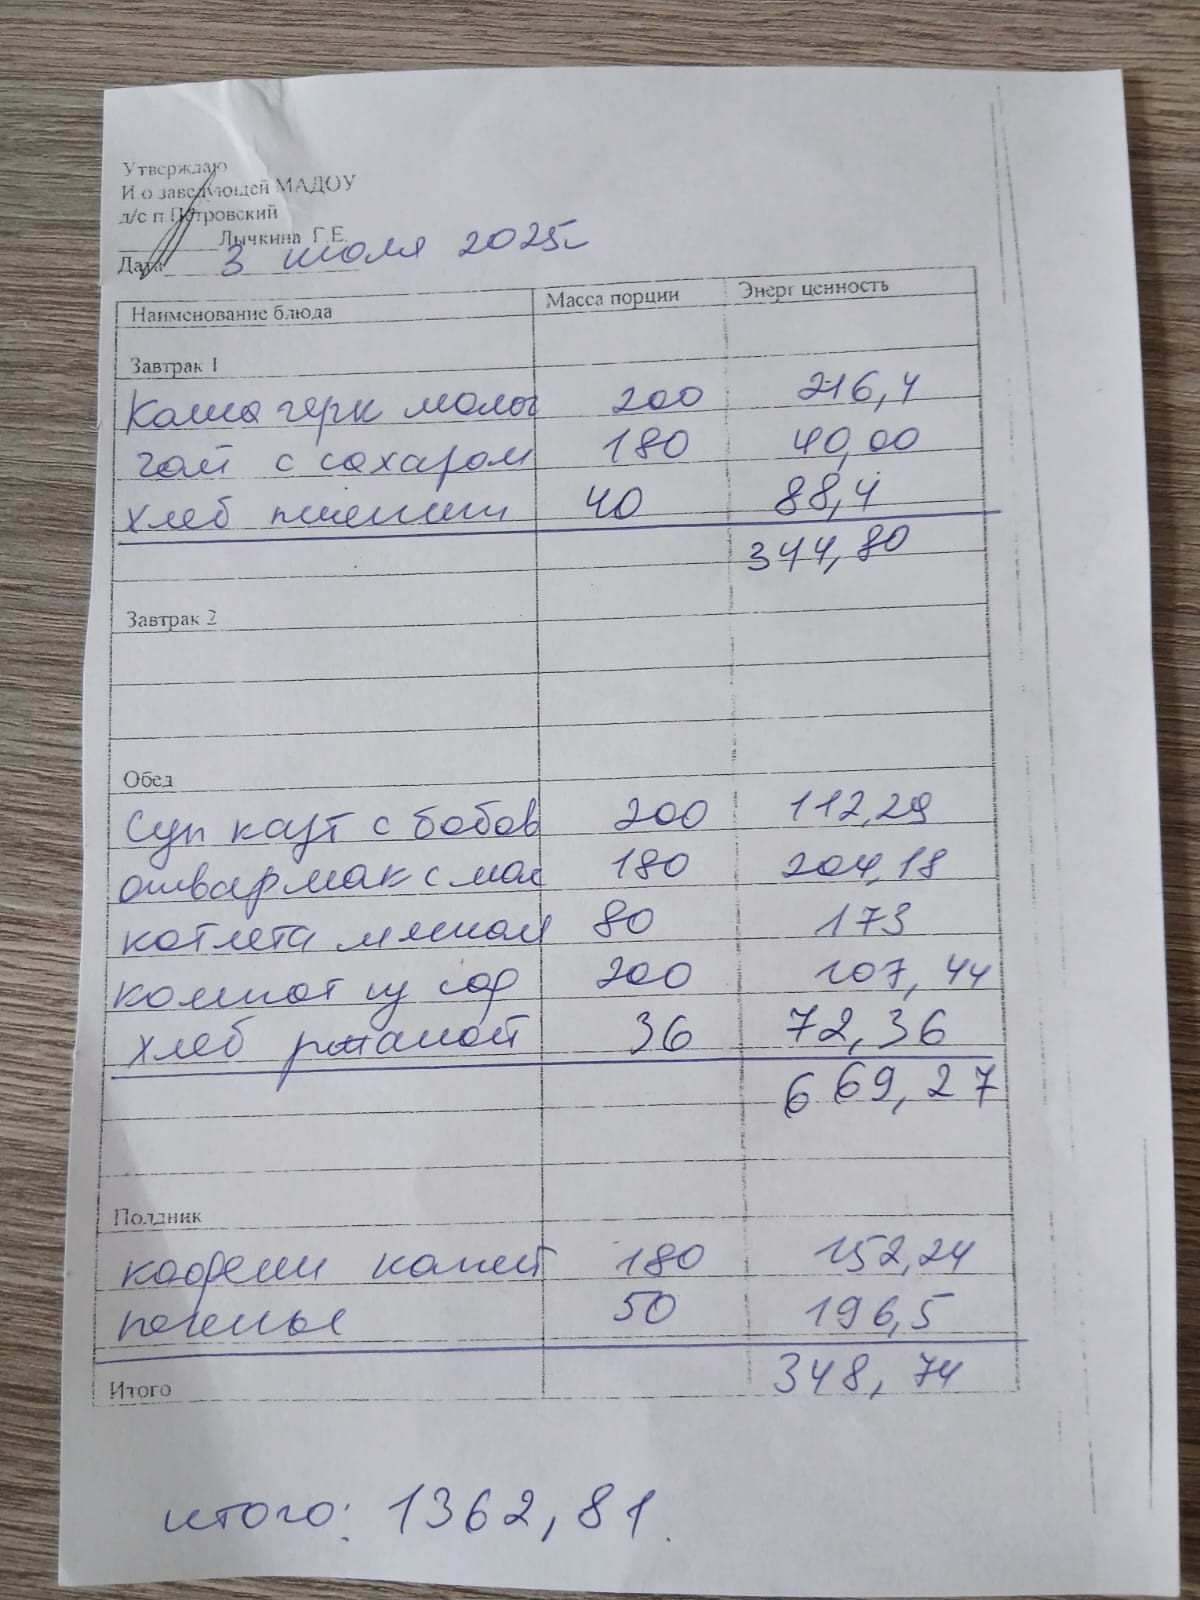 Утверждаю
И.о заведующей МАДОУ
д/с п.Петровский
Лычкина Г.Е.
Дата 3 июля 2025г
Наименование блюда Масса порции Энерг ценность
Завтрак 1
Каша герк молоч 200 216,4
чай с сахаром 180 40,00
хлеб пшенич 40 88,4
344,80
Завтрак 2
Обед
Суп карт с бобов 200 112,29
отвар мак с мас 180 204,18
котлета мясная 80 173
компот из сфр 200 107,44
хлеб ржаной 36 72,36
669,27
Полдник
кофейн напит 180 152,24
печенье 50 196,5
Итого 348,74
итого: 1362,81.